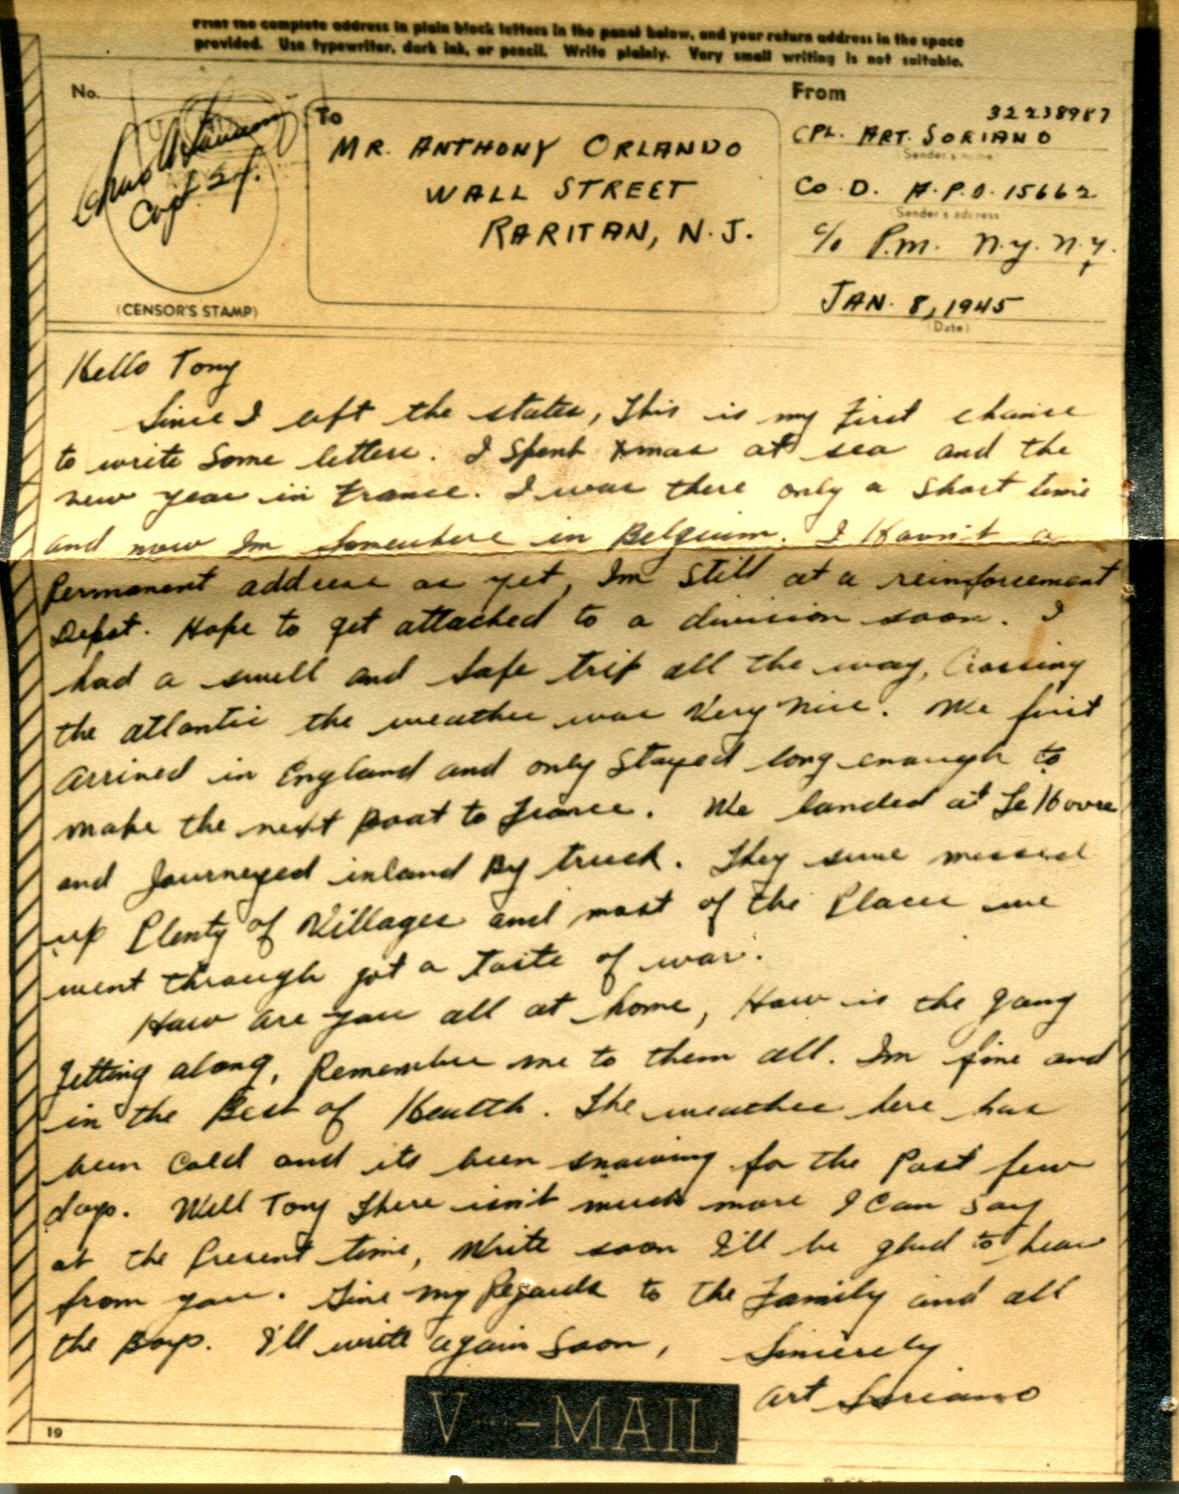 Print the complete address in plain block letters in the panel below, and your return address in the space
provided. Use typewriter, dark ink, or pencil. Write plainly. Very small writing is not suitable.
No.
Capt.
(CENSOR'S STAMP)
To
MR. ANTHONY ORLANDO
WALL STREET
RARITAN, N.J.
From
32238987
CPL. ART. SORIANO
Sender's name
CO. D. A.P.O. 15662
Sender's address
c/o P.M. N.Y. N.Y.
JAN. 8, 1945
(Date)
Hello Tony
Since I left the states, This is my First chance
to write Some letters. I Spent Xmas at sea and the
new year in France. I was there only a Short time
and now Im Somewhere in Belgium. I Havn't a
Permanent address as yet, Im Still at a reinforcement
Depot. Hope to get attached to a division soon. I
had a swell and Safe trip all the way, Crossing
the atlantic the weather was Very Nice. We first
arrived in England and only Stayed long enough to
make the next Boat to France. We landed at Le Havre
and Journeyed inland By truck. They sure messed
up Plenty of Villages and most of the Places we
went through got a Taste of war.
How are you all at home, How is the gang
getting along, Remember me to them all. Im fine and
in the Best of Health. The weather here has
been Cold and its been snowing for the Past few
days. Well Tony There isn't much more I Can Say
at the Present time, Write soon I'll be glad to hear
from you. Give my Regards to the Family and all
the Boys. I'll write again Soon,
Sincerely
Art Soriano
V---MAIL
19